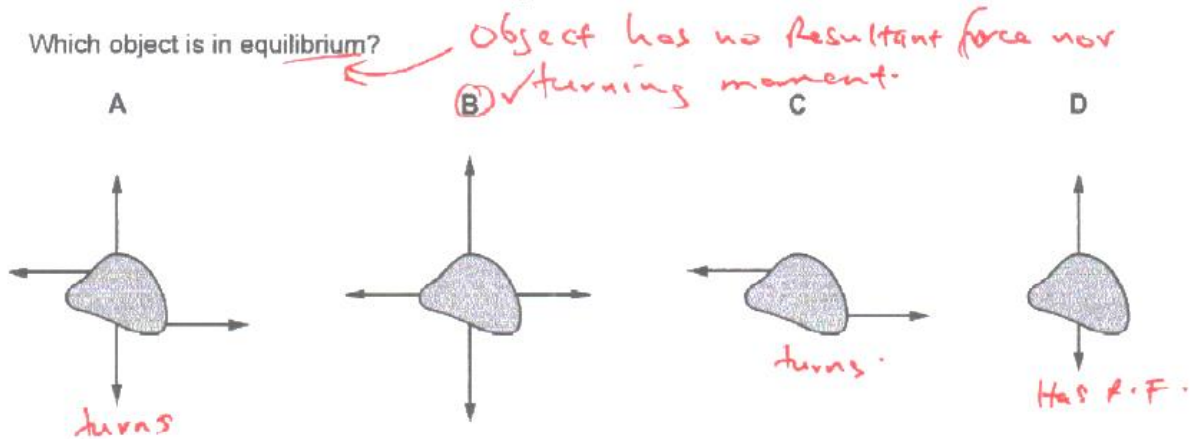 Which object is in equilibrium?
Object has no Resultant force nor
turning moment.
A
B
C
D
turns
turns.
Has R.F.